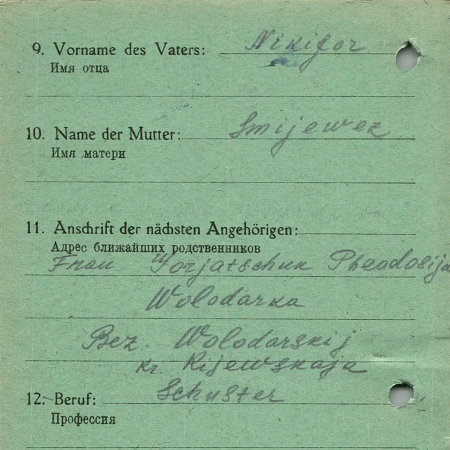 9. Vorname des Vaters: Nikifor
Имя отца
10. Name der Mutter: Smijewez
Имя матери
11. Anschrift der nächsten Angehörigen:
Адрес ближайших родственников
Frau Gorjatschuk Pheodosija
Wolodarka
Bez. Wolodarskij
Kr. Kijewskaja
12. Beruf: Schuster
Профессия